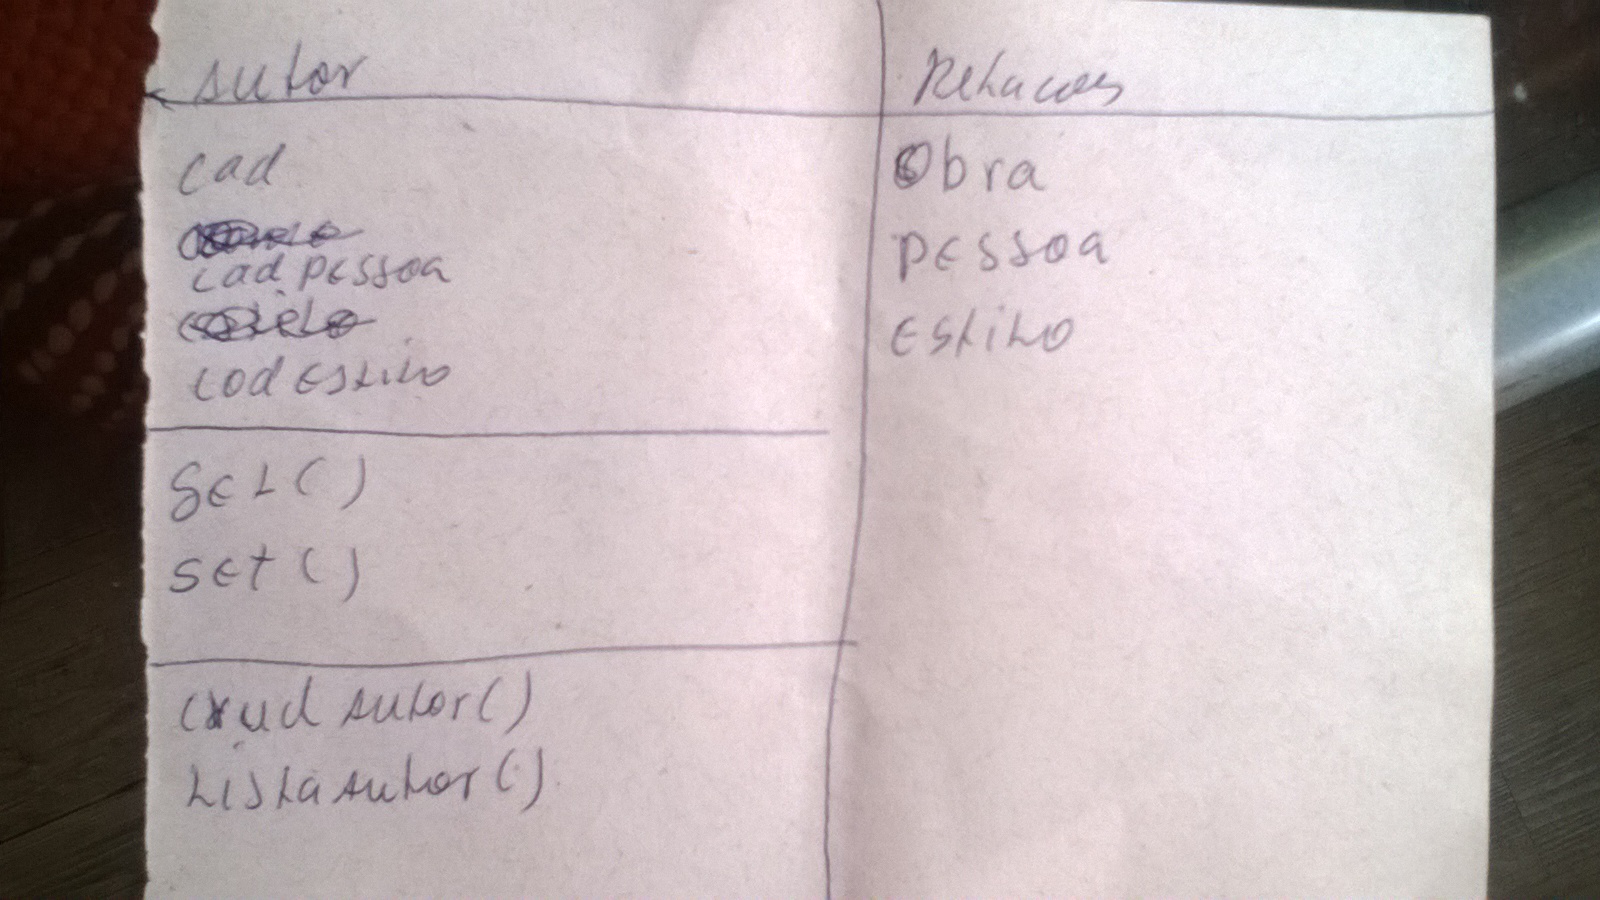 Autor
Cod
Cod Pessoa
Cod Estilo
get()
set()
Crud Autor()
Lista Autor()
Relacoes
Obra
Pessoa
Estilo